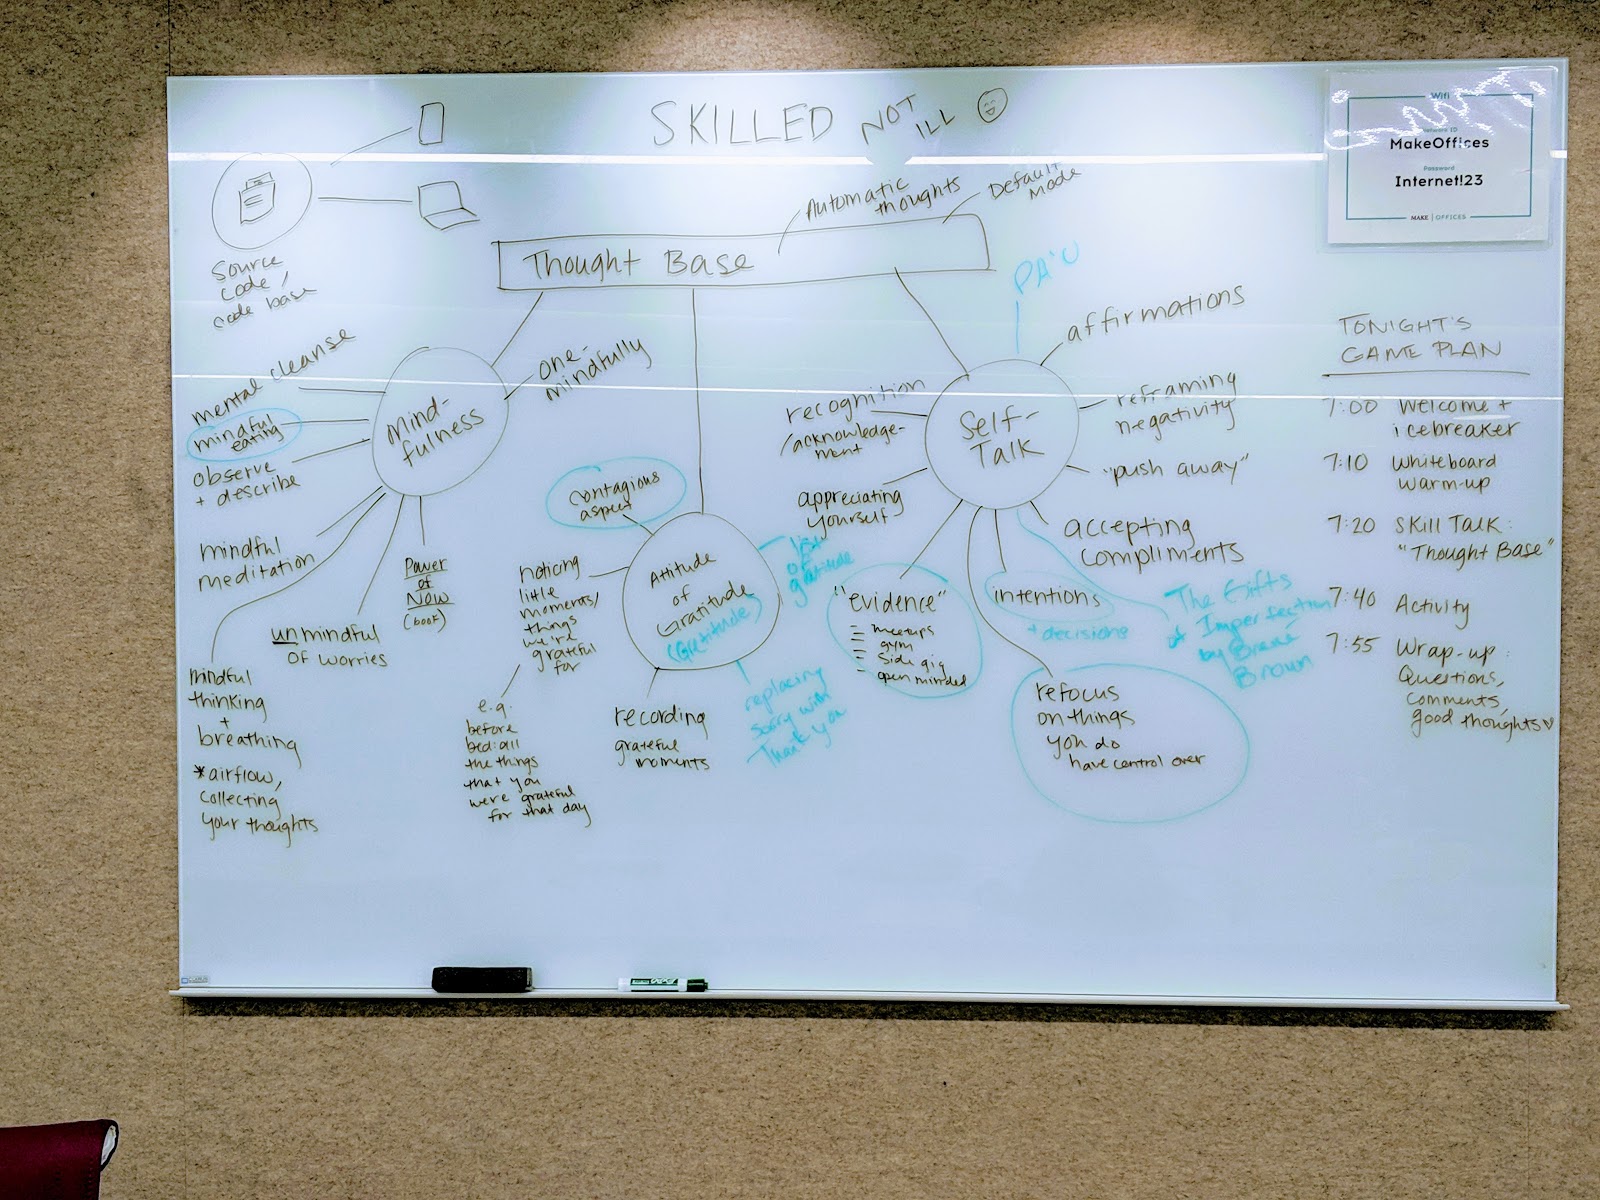 SKILLED NOT ILL
Wifi
Network ID
MakeOffices
Password
Internet!23
MAKE | OFFICES
source
code/
code base
Automatic
thoughts
Default
Mode
Thought Base
Mind-
fulness
mental cleanse
mindful
eating
observe
+ describe
mindful
meditation
mindful
thinking
+
breathing
*airflow,
collecting
your thoughts
unmindful
of worries
Power
of
Now
(book)
one-
mindfully
Attitude
of
Gratitude
(Gratitude)
contagious
aspect
noticing
little
moments/
things
we're
grateful
for
e.g.
before
bed: all
the things
that you
were grateful
for that day
recording
grateful
moments
replacing
sorry with
Thank you
list
of
gratitude
Self-
Talk
PA'U
affirmations
reframing
negativity
"push away"
accepting
compliments
The Gifts
of Imperfection
by Brené
Brown
intentions
+ decisions
refocus
on things
you do
have control over
"evidence"
- meetups
- gym
- side gig
- open minded
appreciating
yourself
recognition
/acknowledge-
ment
TONIGHT'S
GAME PLAN
7:00 Welcome +
icebreaker
7:10 Whiteboard
warm-up
7:20 Skill Talk:
"Thought Base"
7:40 Activity
7:55 Wrap-up:
Questions,
comments,
good thoughts ♡